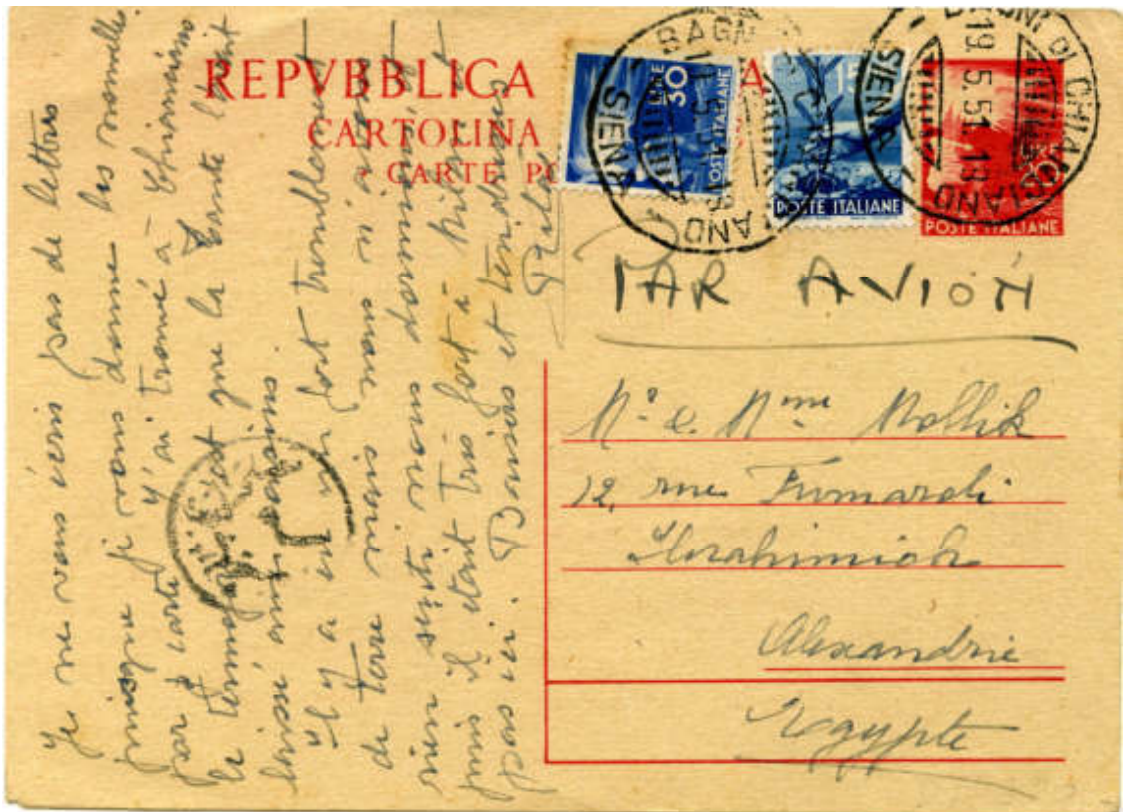 REPVBBLICA
CARTOLINA
CARTE PO
LIRE
30
POSTE ITALIANE
15
POSTE ITALIANE
POSTE ITALIANE
BAGNI DI CHIANCIANO
SIENA
19.5.51.18
PAR AVION
Mr. e. Mme Mallik
12, rue Fumaroli
Ibrahimieh
Alexandrie
Egypte
Je ne vous écris pas de lettres
puisque je vous donne les nouvelles
par carte. J'ai trouvé à Chianciano
le témoignage que la Tante l'avait
laissé aux
Il y a eu un fort tremblement
de terre mais nous n'avons
rien senti nous avons
puis il était très fort à
pas ici. Baisers et tendresses